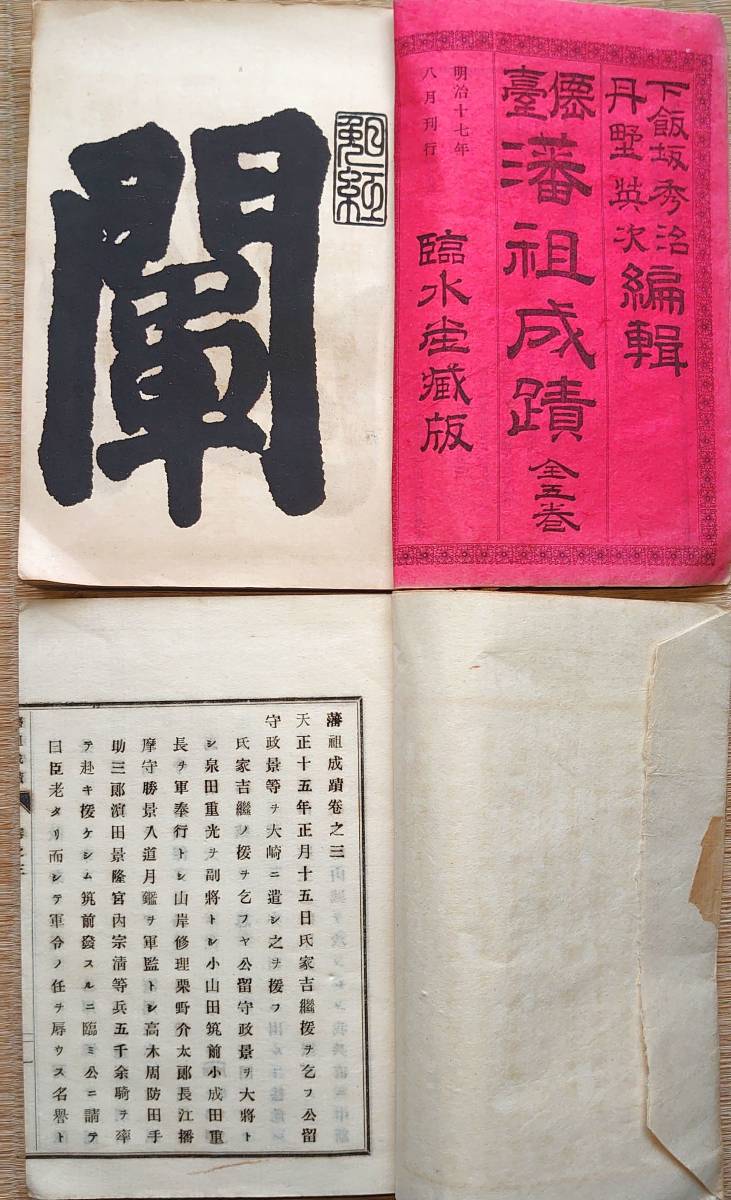 下飯坂秀治
丹墅英次
編輯
僊臺
藩祖成蹟 全五巻
明治十七年
八月刊行
臨水堂藏版
藩祖成蹟卷之三
天正十五年正月十五日氏家吉繼援ヲ乞フ公留
守政景等ヲ大崎ニ遣シ之ヲ援フ
氏家吉繼ノ援ヲ乞フヤ公留守政景ヲ大將ト
シ泉田重光ヲ副將トシ小山田筑前小成田重
長ヲ軍奉行トシ山岸修理栗野介太郞長江播
摩守勝景入道月鑑ヲ軍監トシ高木周防田手
助三郞濱田景隆宮內宗淸等兵五千余騎ヲ率
テ赴キ援ケシム筑前發スルニ臨ミ公ニ請テ
曰臣老タリ而シテ軍令ノ任ヲ辱ウス名譽ト